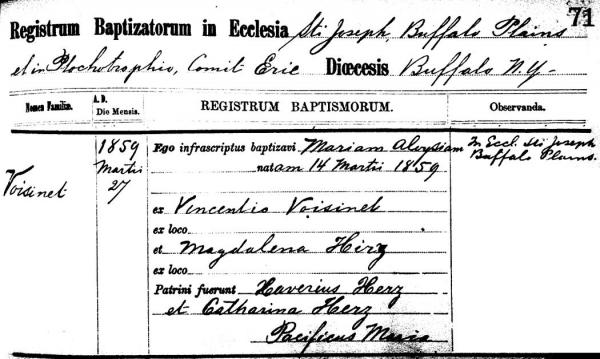 71
Registrum Baptizatorum in Ecclesia Sti Joseph, Buffalo Plains
et in Ptochotrophio, Comit Erie Diœcesis Buffalo N.Y-
Nomen Familiæ. A. D. Die Mensis. REGISTRUM BAPTISMORUM. Observanda.
Voisinet
1859
Martii
27
Ego infrascriptus baptizavi Mariam Aloysiam
natam 14 Martii 1859
ex Vincentio Voisinet
ex loco
et Magdalena Hirz
ex loco
Patrini fuerunt Xaverius Herz
et Catharina Herz
Pacificus Maria
In Eccl. Sti Joseph
Buffalo Plains.